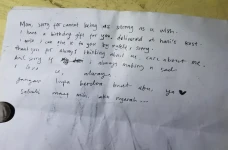 Mom, sorry for cannot being as strong as u wish.
I have a birthday gift for you, delivered at hani's best.
I wish I can see it to you by myself, sorry.
Thank you for always thinking about us, care about me.
And sorry if I always making u sad.
I love u, always.
Jangan lupa berdoa buat aku, ya ♥
Selalu